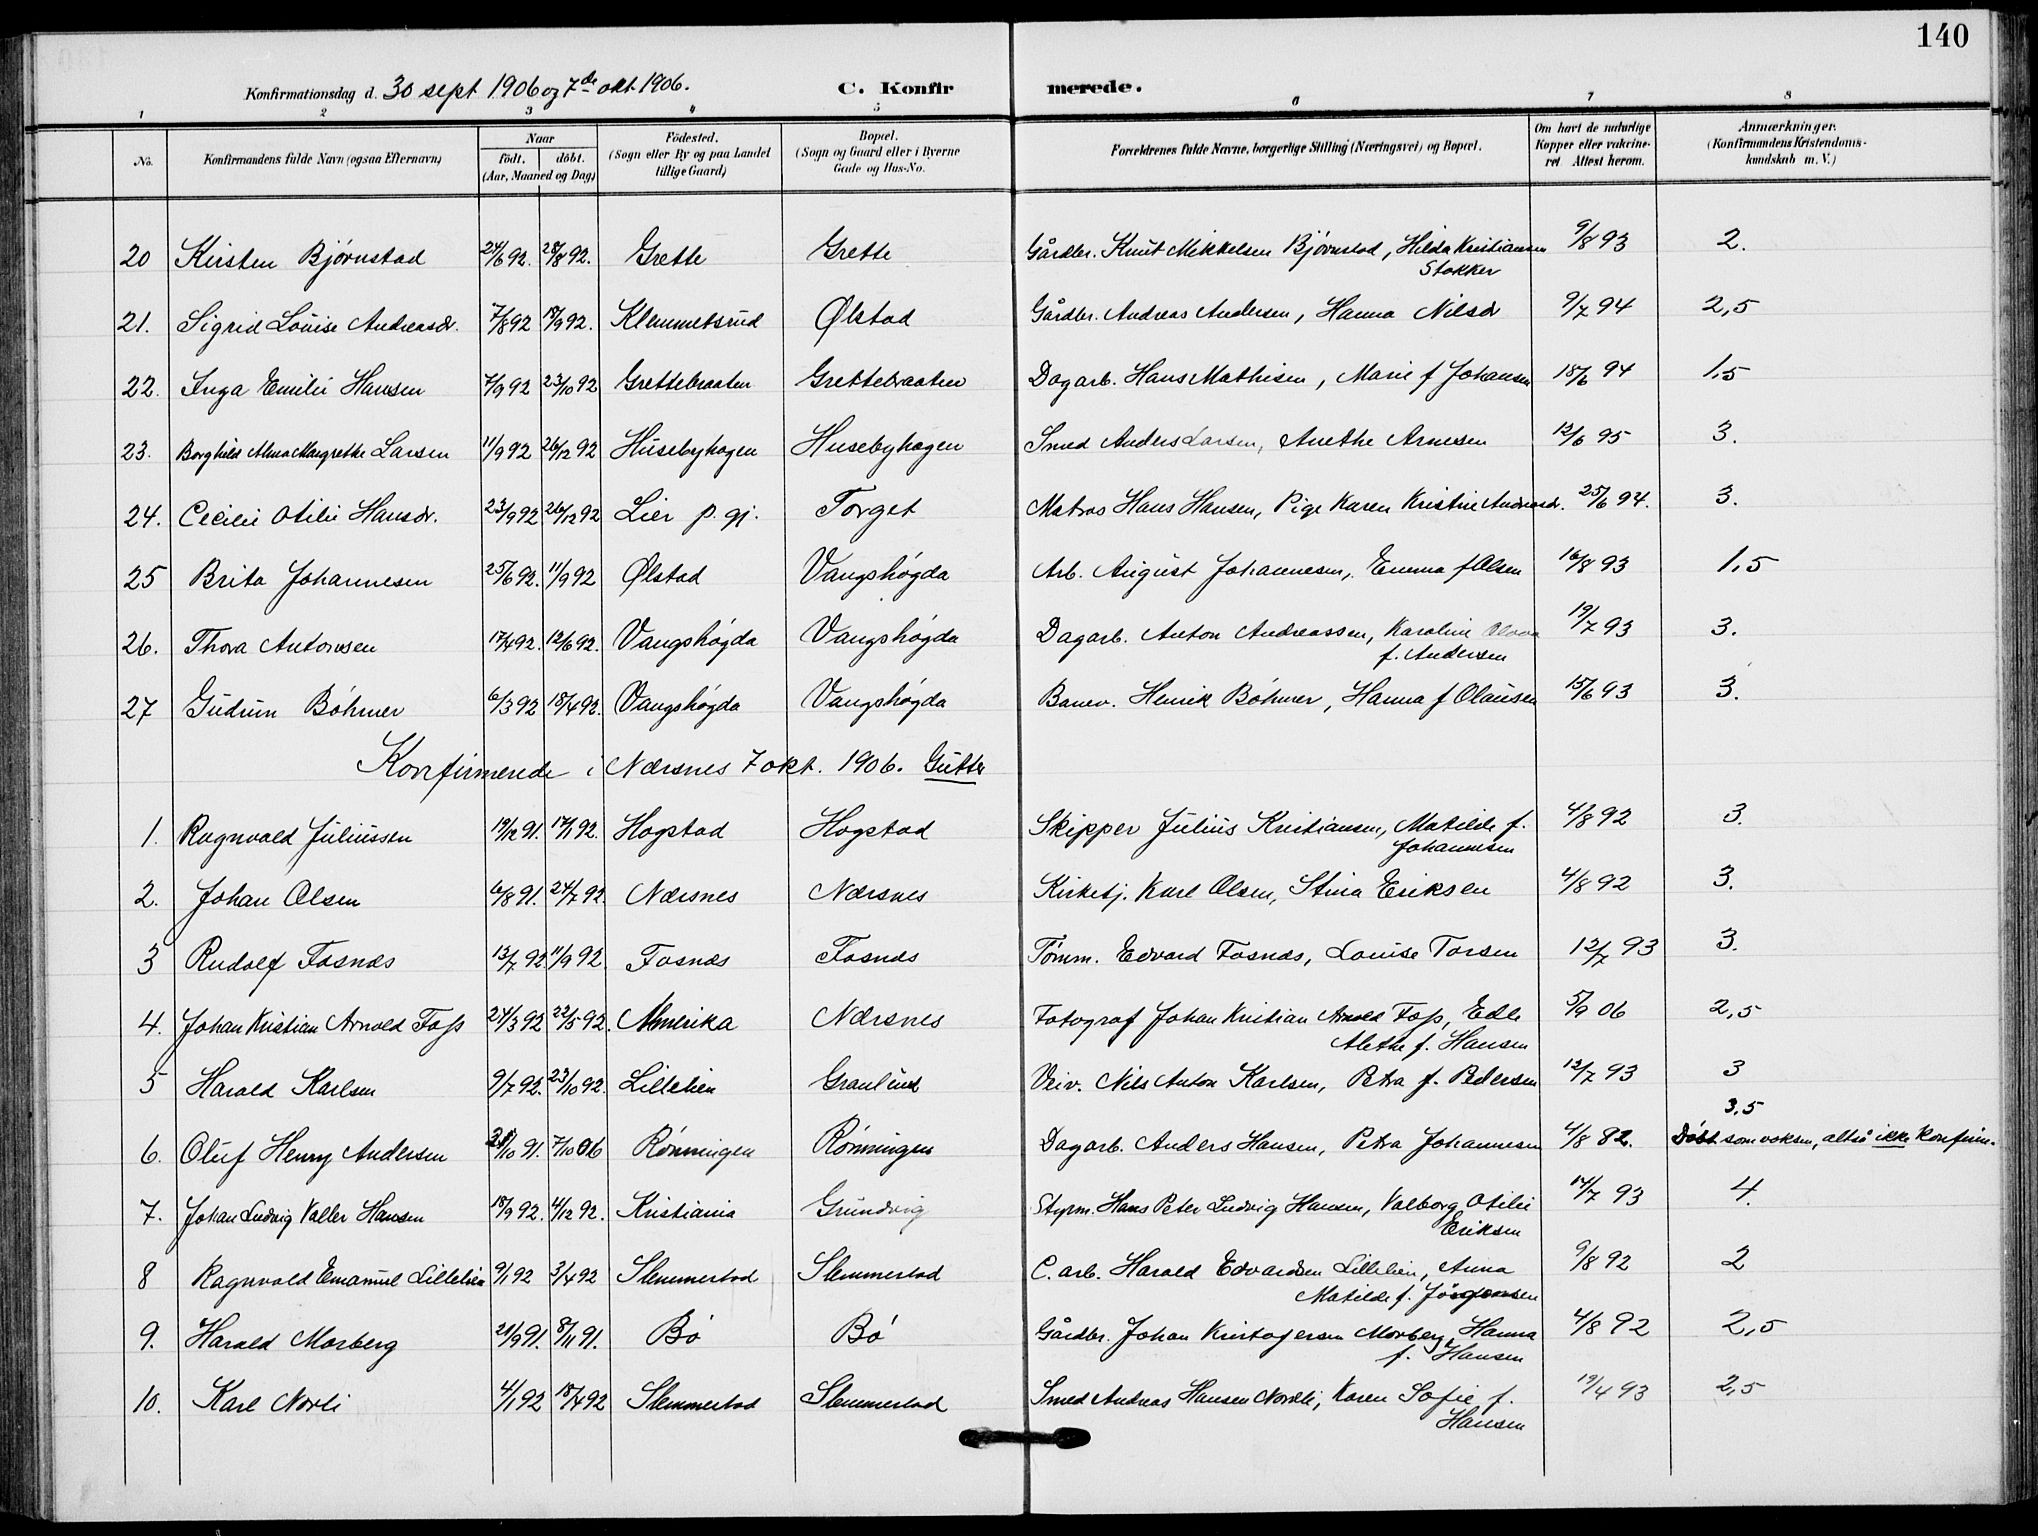 140
Konfirmationsdag d. 30 sept 1906 og 7de okt. 1906. C. Konfirmerede.
1 2 3 4 5 6 7 8
No. Konfirmandens fulde Navn (ogsaa Efternavn) Naar født. døbt. (Aar, Maaned og Dag) Fødested. (Sogn eller By og paa Landet tillige Gaard) Bopæl. (Sogn og Gaard eller i Byerne Gade og Hus-No. Forældrenes fulde Navne, borgerlige Stilling (Næringsvei) og Bopæl. Om havt de naturlige Kopper eller vakcineret. Attest herom. Anmærkninger. (Konfirmandens Kristendomskundskab m. V.)
20 Kirsten Bjørnstad 24/6 92. 28/8 92. Grette Grette Gårdbr. Knut Mikkelsen Bjørnstad, Hilda Kristiansen Stokker 9/8 93 2.
21. Sigrid Louise Andreasdr. 7/8 92 18/9 92. Klemmetsrud Ølstad Gårdbr. Andreas Andersen, Hanna Nilsdr 9/7 94 2,5
22. Inga Emilie Hansen 7/9 92 23/10 92 Grettebraaten Grettebraaten Dagarb. Hans Mathisen, Marie f Johansen 18/6 94 1,5
23. Borghild Alma Margrethe Larsen 11/9 92 26/12 92 Husebyhagen Husebyhagen Smed Anders Larsen, Anethe Arnesen 12/6 95 3.
24. Cecilie Otilie Hansdr. 23/9 92 26/12 92 Lier p. gj. Torget Matros Hans Hansen, Pige Karen Kristine Andreasdr. 25/6 94. 3.
25 Brita Johannesen 25/6 92. 11/9 92 Ølstad Vangshøgda Arb. August Johannesen, Emma f Olsen 16/8 93 1,5
26. Thora Antonsen 17/4 92. 12/6 92. Vangshøgda Vangshøgda Dagarb. Anton Andreassen, Karoline f. Andersen 19/7 93 3.
27 Gudrun Bøhmer 6/3 92 18/4 92. Vangshøgda Vangshøgda Banev. Henrik Bøhmer, Hanna f Olausen 15/6 93 3.
Konfirmerede i Nærsnes 7 okt. 1906. Gutter
1. Ragnvald Juliussen 19/12 91. 17/1 92. Hogstad Hogstad Skipper Julius Kristiansen, Matilde f. Johannesen 4/8 92 3.
2. Johan Olsen 6/8 91. 24/7 92. Nærsnes Nærsnes Kirketj. Karl Olsen, Stina Eriksen 4/8 92 3.
3 Rudolf Fosnæs 13/7 92 11/9 92. Fosnæs Fosnæs Tømm. Edvard Fosnæs, Louise Torsen 12/7 93 3.
4. Johan Kristian Arnold Foss 24/3 92 22/5 92. Amerika Nærsnes Fotograf Johan Kristian Arnold Foss, Edle Alethe f. Hansen 5/9 06 2,5
5 Harald Karlsen 9/7 92. 23/10 92. Lillelien Granlund Veiv. Nils Anton Karlsen, Petra f. Pedersen 12/7 93 3
6. Oluf Henry Andersen /10 91. 7/10 06 Rønningen Rønningen Dagarb. Anders Hansen, Petra Johannesen 4/8 82. 3,5 Døbt som voksen, altså ikke konfirm.
7. Johan Ludvig Valler Hansen 18/9 92. 4/12 92. Kristiania Grundvig Styrm. Hans Peter Ludvig Hansen, Valborg Otilie Eriksen 14/7 93 4.
8 Ragnvald Emanuel Lillelien 9/1 92 3/4 92 Slemmestad Slemmestad C. arb. Harald Edvardsen Lillelien, Anna Matilde f. Jörgensen 9/8 92 2
9. Harald Morberg 21/9 91. 8/11 91. Bø Bø Gårdbr. Johan Kristofersen Morberg, Hanna f. Hansen 4/8 92 2,5
10. Karl Norli 4/1 92 18/4 92 Slemmestad Slemmestad Smed Andreas Hansen Nordli, Karen Sofie f. Hansen 19/4 93 2,5